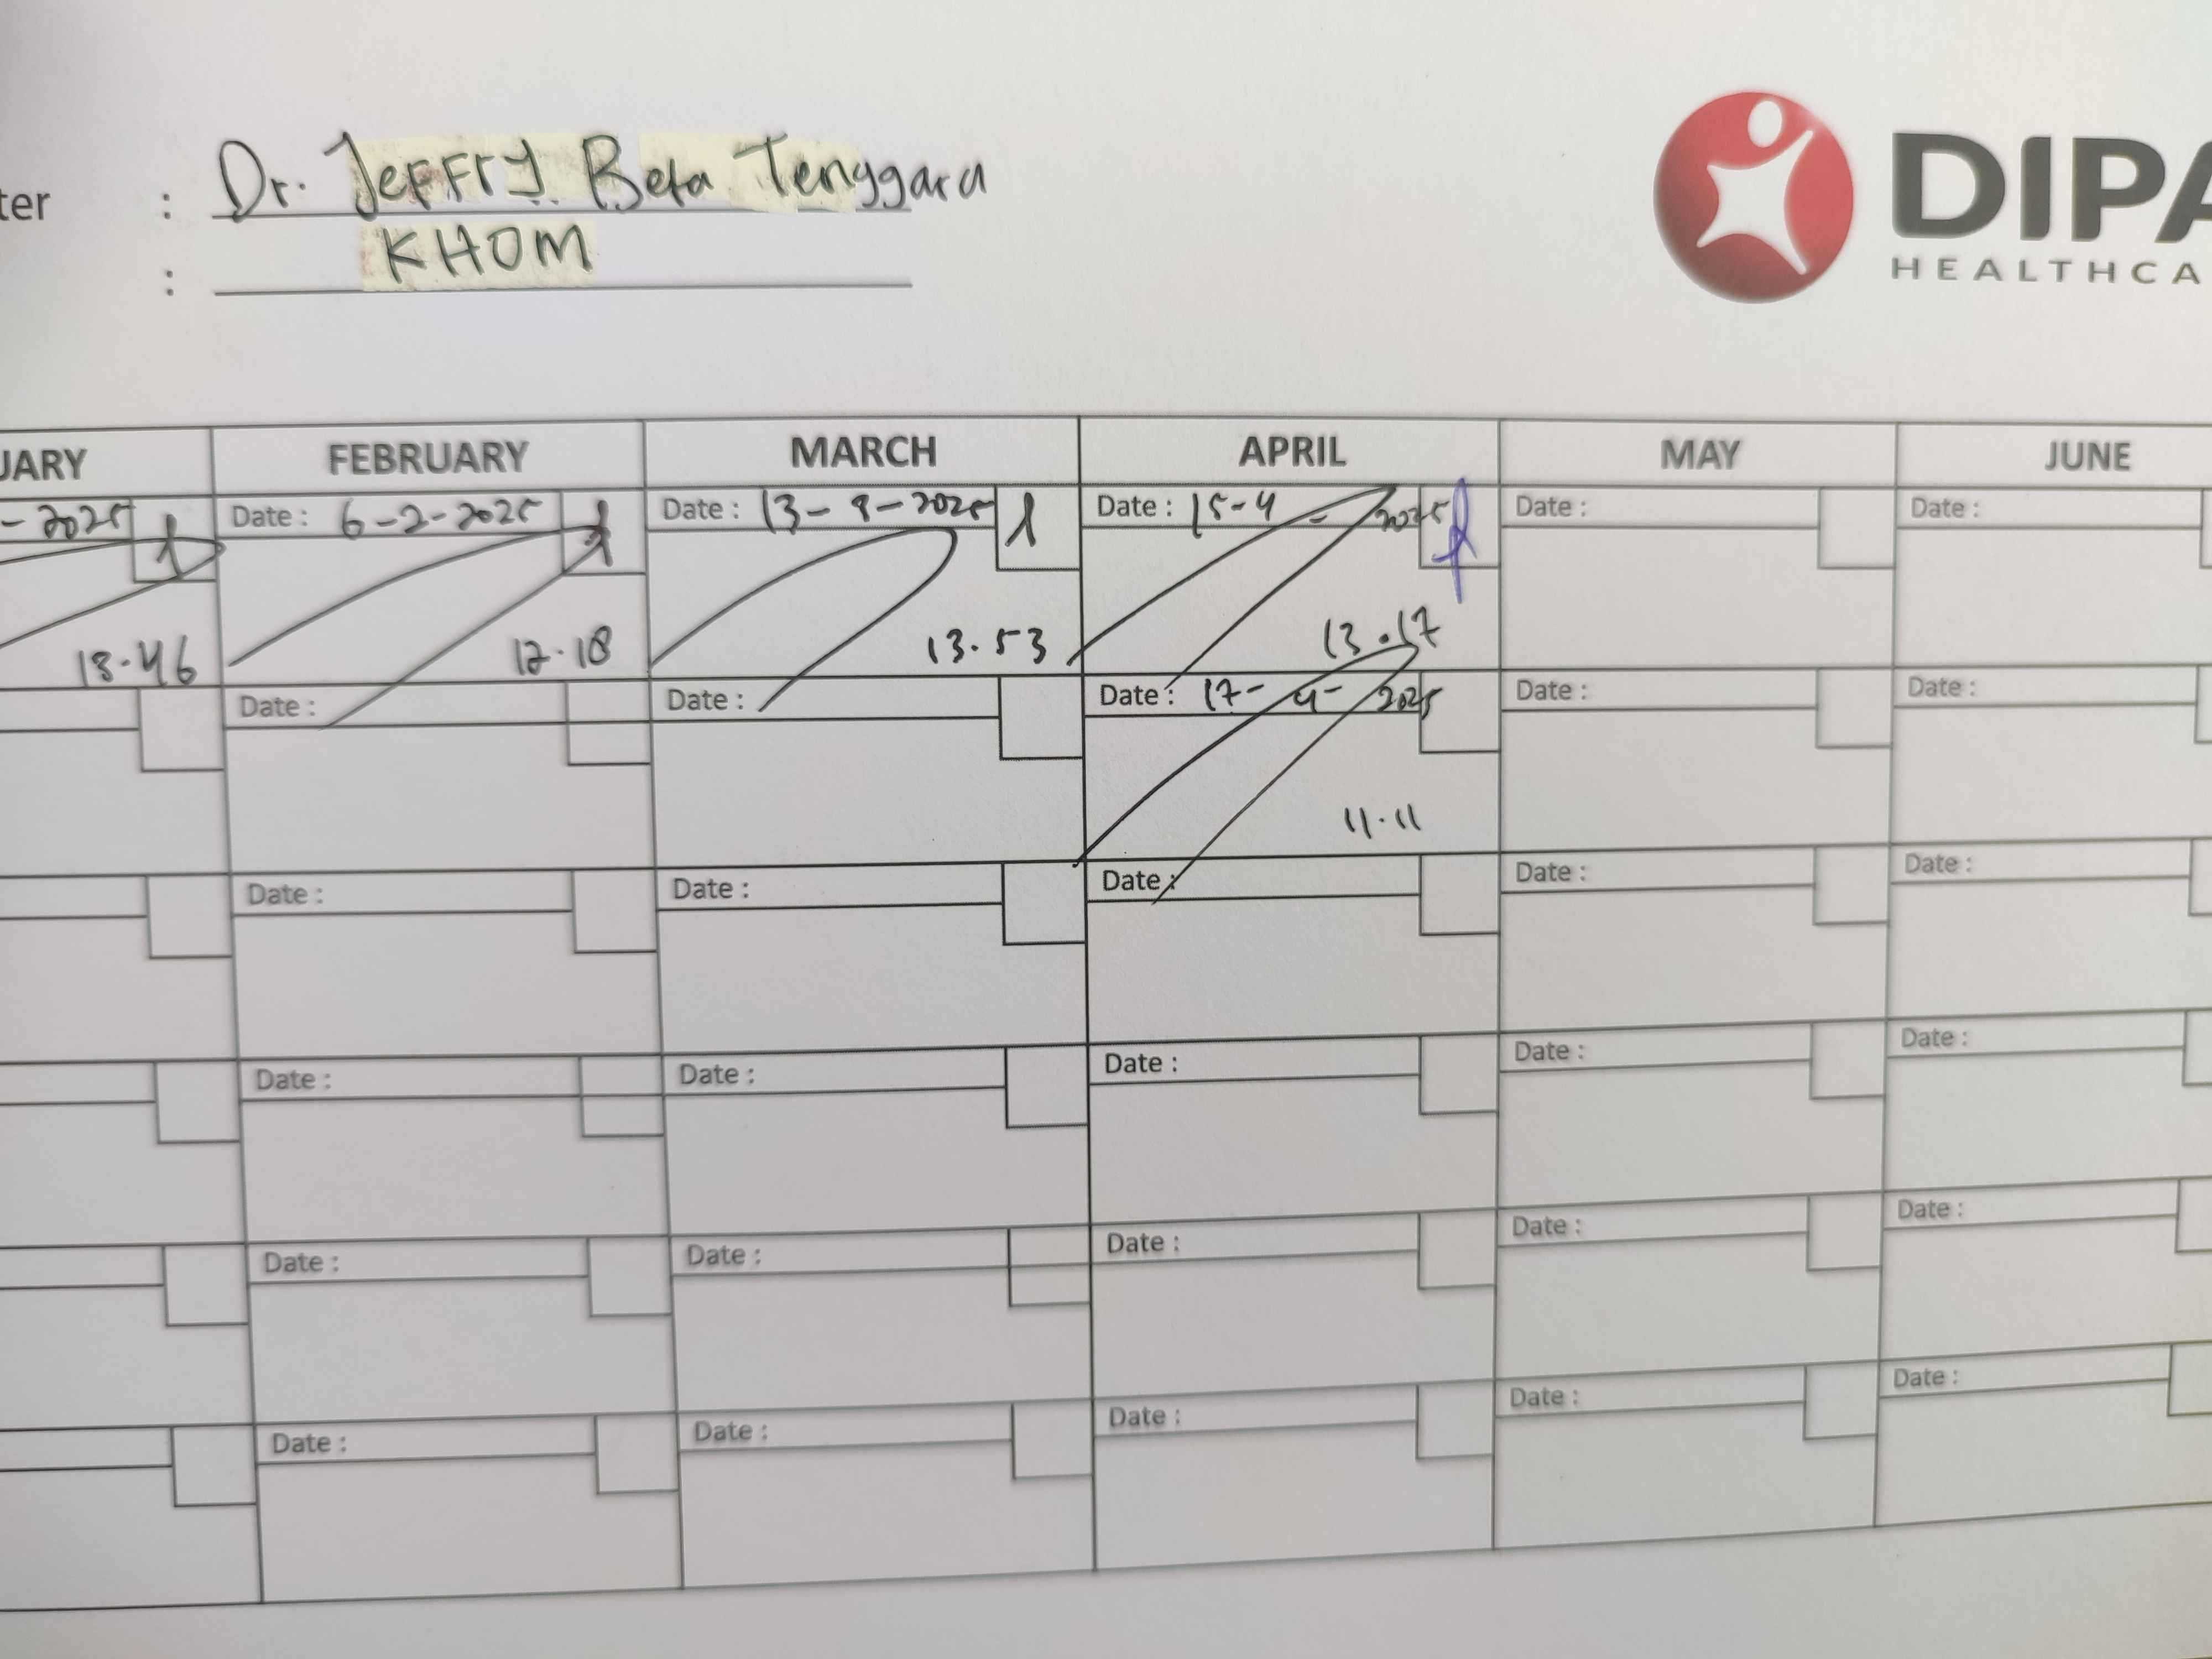 ter : Dr. Jeffry Beta Tenggara
: KHOM
DIPA
HEALTHCA
UARY FEBRUARY MARCH APRIL MAY JUNE
- 2025 Date : 6-2-2025 Date : 13-3-2025 Date : 15-4-2025 Date : Date :
13.46 12.18 13.53 13.17
Date : Date : Date : 17-4-2025 Date : Date :
11.11
Date : Date : Date : Date : Date :
Date : Date : Date : Date : Date :
Date : Date : Date : Date : Date :
Date : Date : Date : Date : Date :